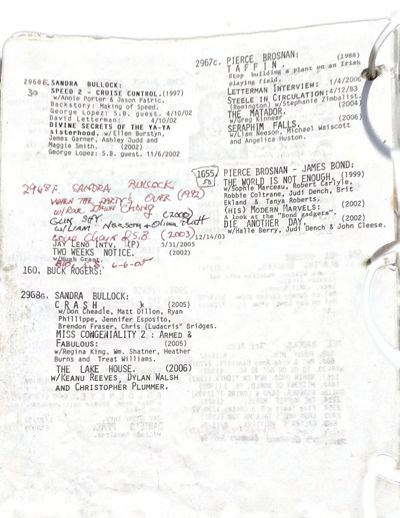 2968E. SANDRA BULLOCK:
30 SPEED 2 - CRUISE CONTROL.(1997)
w/Annie Porter & Jason Patric.
Backstory: Making of Speed.
George Lopez: S.B. guest. 4/10/02
David Letterman: 4/10/02
DIVINE SECRETS OF THE YA-YA
sisterhood. w/Ellen Burstyn,
James Garner, Ashley Judd and
Maggie Smith. (2002)
George Lopez: S.B. guest, 11/6/2002
2968F. SANDRA BULLOCK
WHEN THE PARTY'S OVER (1992)
w/Rae Dawn Chong
GUN SHY (2000)
w/Liam Neeson & Oliver Platt
S.B. (2003) 12/14/03
JAY LENO INTV. (P) 5/31/2003
TWO WEEKS NOTICE. (2002)
w/Hugh Grant.
6-6-05
160. BUCK ROGERS:
2968G. SANDRA BULLOCK:
C R A S H . (2005)
w/Don Cheadle, Matt Dillon, Ryan
Phillippe, Jennifer Esposito,
Brendon Fraser, Chris (Ludacris" Bridges.
MISS CONGENIALITY 2 : ARMED &
FABULOUS: (2005)
w/Regina King, Wm. Shatner, Heather
Burns and Treat Williams.
THE LAKE HOUSE. (2006)
w/KEANU REEVES, DYLAN WALSH
AND CHRISTOPHER PLUMMER.
2967c. PIERCE BROSNAN:
T A F F I N . (1988)
Stop building a plant on an Irish
playing field.
LETTERMAN INTERVIEW: 1/4/2006
STEELE IN CIRCULATION:4/12/83
(Remington) w/Stephanie Zimbalist.
THE MATADOR. (2004)
w/Greg Kinnear
SERAPHIM FALLS. (2006)
w/Liam Neeson, Michael Waiscott
and Angelica Huston.
1655. PIERCE BROSNAN - JAMES BOND:
53 THE WORLD IS NOT ENOUGH. (1999)
w/Sophie Marceau, Robert Carlyle,
Robbie Coltrane, Judi Dench, Brit
Ekland & Tanya Roberts.
(HIS) MODERN MARVELS: (2002)
A look at the "Bond gadgets".
DIE ANOTHER DAY. (2002)
w/Halle Berry, Judi Dench & John Cleese.